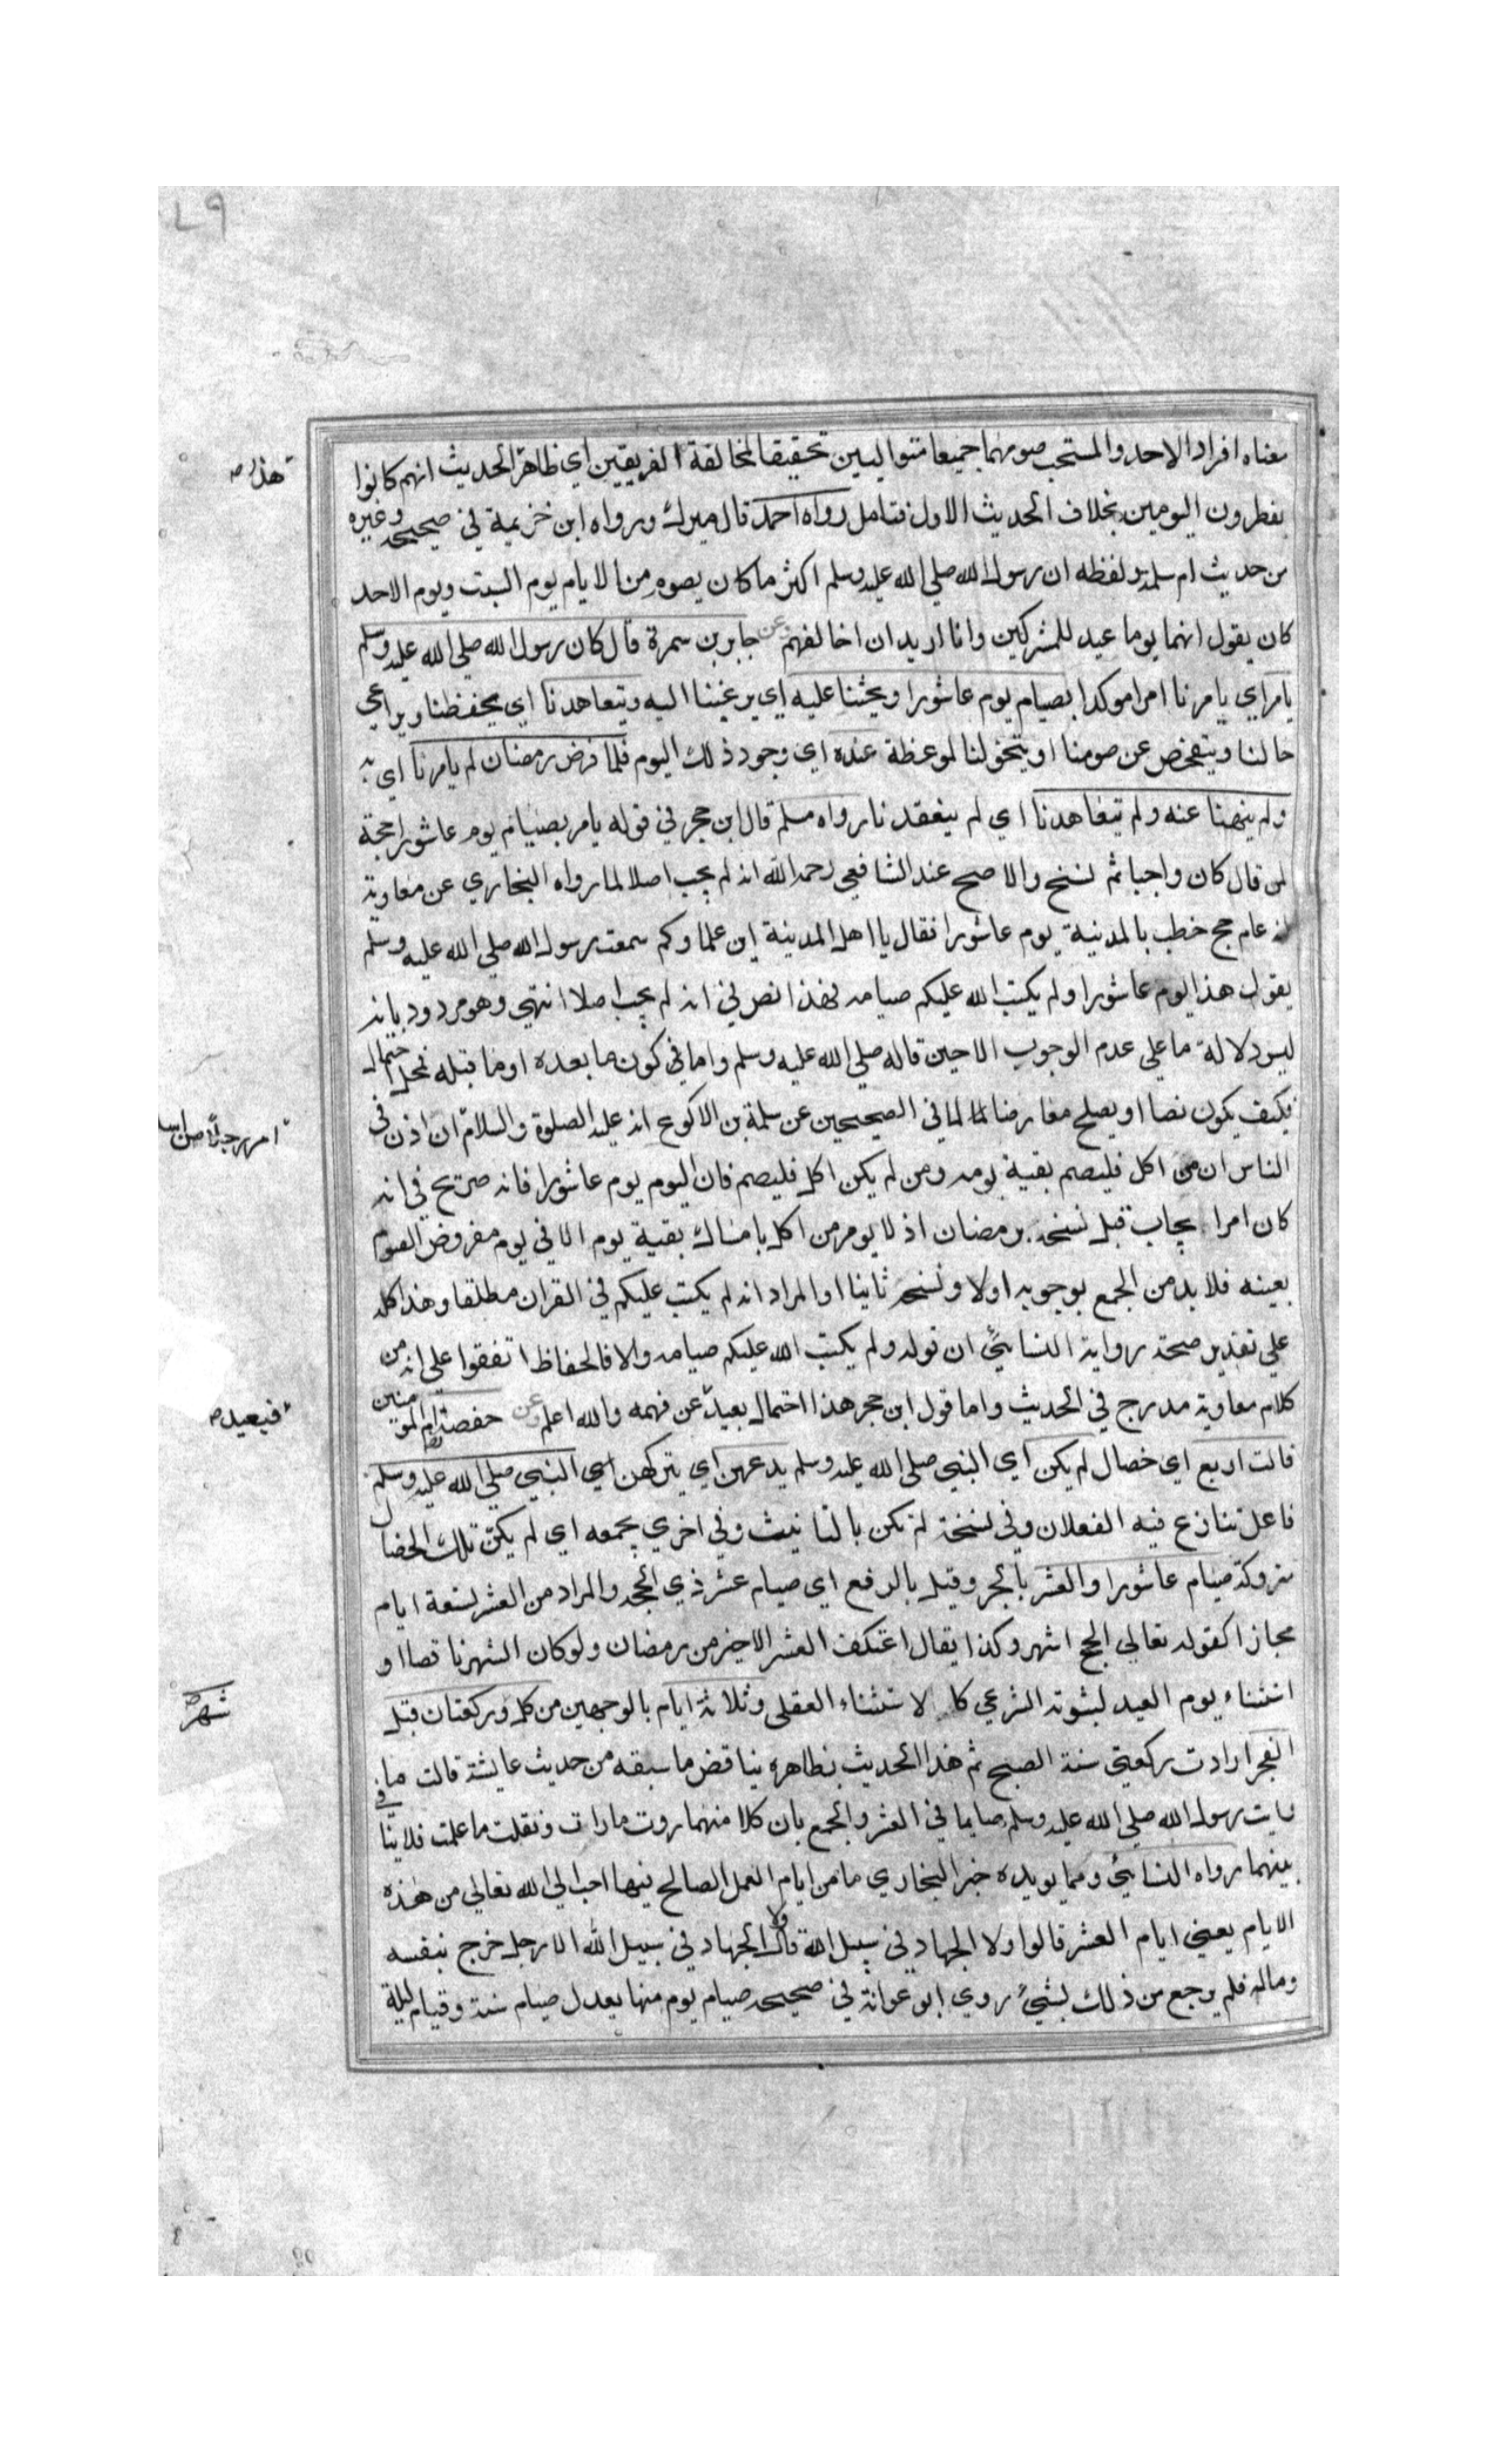 ٧٩
معناه افراد الاحد والمستحب صومهما جميعا متواليين تحقيقا لمخالفة الفريقين اي ظاهر الحديث انهم كانوا
هذا
يفطرون اليومين بخلاف الحديث الاول فتامل رواه احمد قال ميرك ورواه ابن خزيمة في صحيحه وغيره
من حديث ام سلمة ولفظه ان رسول الله صلي الله عليه وسلم اكثر ما كان يصوم من الايام يوم السبت ويوم الاحد
كان يقول انهما يوما عيد للمشركين وانا اريد ان اخالفهم عن جابر بن سمرة قال كان رسول الله صلي الله عليه وسلم
يامر اي يامرنا امرا موكدا بصيام يوم عاشورا ويحثنا عليه اي يرغبنا اليه ويتعاهدنا اي يحفظنا ويراعي
حالنا ويتفحص عن صومنا او يتخولنا لموعظة عنده اي وجود ذلك اليوم فلما فرض رمضان لم يامرنا اي به
ولم ينهنا عنه ولم يتعاهدنا اي لم يتفقدنا رواه مسلم قال ابن حجر في قوله يامر بصيام يوم عاشورا حجة
لمن قال كان واجبا ثم نسخ والاصح عند الشافعي رحمه الله انه لم يجب اصلا لما رواه البخاري عن معاوية
انه عام حج خطب بالمدينة يوم عاشورا فقال يا اهل المدينة اين علماوكم سمعت رسول الله صلي الله عليه وسلم
يقول هذا اليوم عاشورا ولم يكتب الله عليكم صيامه فهذا نص في انه لم يجب اصلا انتهي وهو مردود بانه
ليس دلالة ما علي عدم الوجوب الا حين قاله صلي الله عليه وسلم واما في كون ما بعده او ما قبله فمحل احتمال
فكيف يكون نصا او يصلح معارضا لما في الصحيحين عن سلمة بن الاكوع انه عليه الصلوة والسلام ان اذن في
امر رجلا من اسلم
الناس ان من اكل فليصم بقية يومه ومن لم يكن اكل فليصم فان اليوم يوم عاشورا فانه صريح في انه
كان امرا يجاب قبل نسخه برمضان اذ لا يومر من اكل بامساك بقية يوم الا في يوم مفروض الصوم
بعينه فلا بد من الجمع بوجوبه اولا ونسخه ثانيا او المراد انه لم يكتب عليكم في القران مطلقا وهذا كله
علي تقدير صحة رواية النسائي ان قوله ولم يكتب الله عليكم صيامه والا فالحفاظ اتفقوا علي انه من
كلام معاوية مدرج في الحديث واما قول ابن حجر هذا احتمال بعيد عن فهمه والله اعلم وعن حفصة ام المومنين
فبعيد
قالت اربع اي خصال لم يكن اي النبي صلي الله عليه وسلم يدعهن اي يتركهن اي النبي صلي الله عليه وسلم
فاعل تنازع فيه الفعلان وفي نسخة لم تكن بالتانيث وفي اخري بجمعه اي لم يكن تلك الخصال
متروكة صيام عاشورا والعشر بالجر وقيل بالرفع اي صيام عشر ذي الحجة والمراد من العشر تسعة ايام
مجازا كقوله تعالي الحج اشهر وكذا يقال اعتكف العشر الاخير من رمضان ولو كان الشهر ناقصا او
استثناء يوم العيد لثبوته الشرعي كالاستثناء العقلي وثلاثة ايام بالوجهين من كل وركعتان قبل
شهر
الفجر ارادت ركعتي سنة الصبح ثم هذا الحديث بظاهره يناقض ما سبقه من حديث عايشة قالت ما
رايت رسول الله صلي الله عليه وسلم صايما في العشر والجمع بان كلا منهما روت ما رات ونقلت ما علمت فلا تنافي
بينهما رواه النسائي ومما يويده خبر البخاري ما من ايام العمل الصالح فيها احب الي الله تعالي من هذه
الايام يعني ايام العشر قالوا ولا الجهاد في سبيل الله قال ولا الجهاد في سبيل الله الا رجل خرج بنفسه
وماله فلم يرجع من ذلك بشيء روي ابو عوانة في صحيحه صيام يوم منها يعدل صيام سنة وقيام ليلة